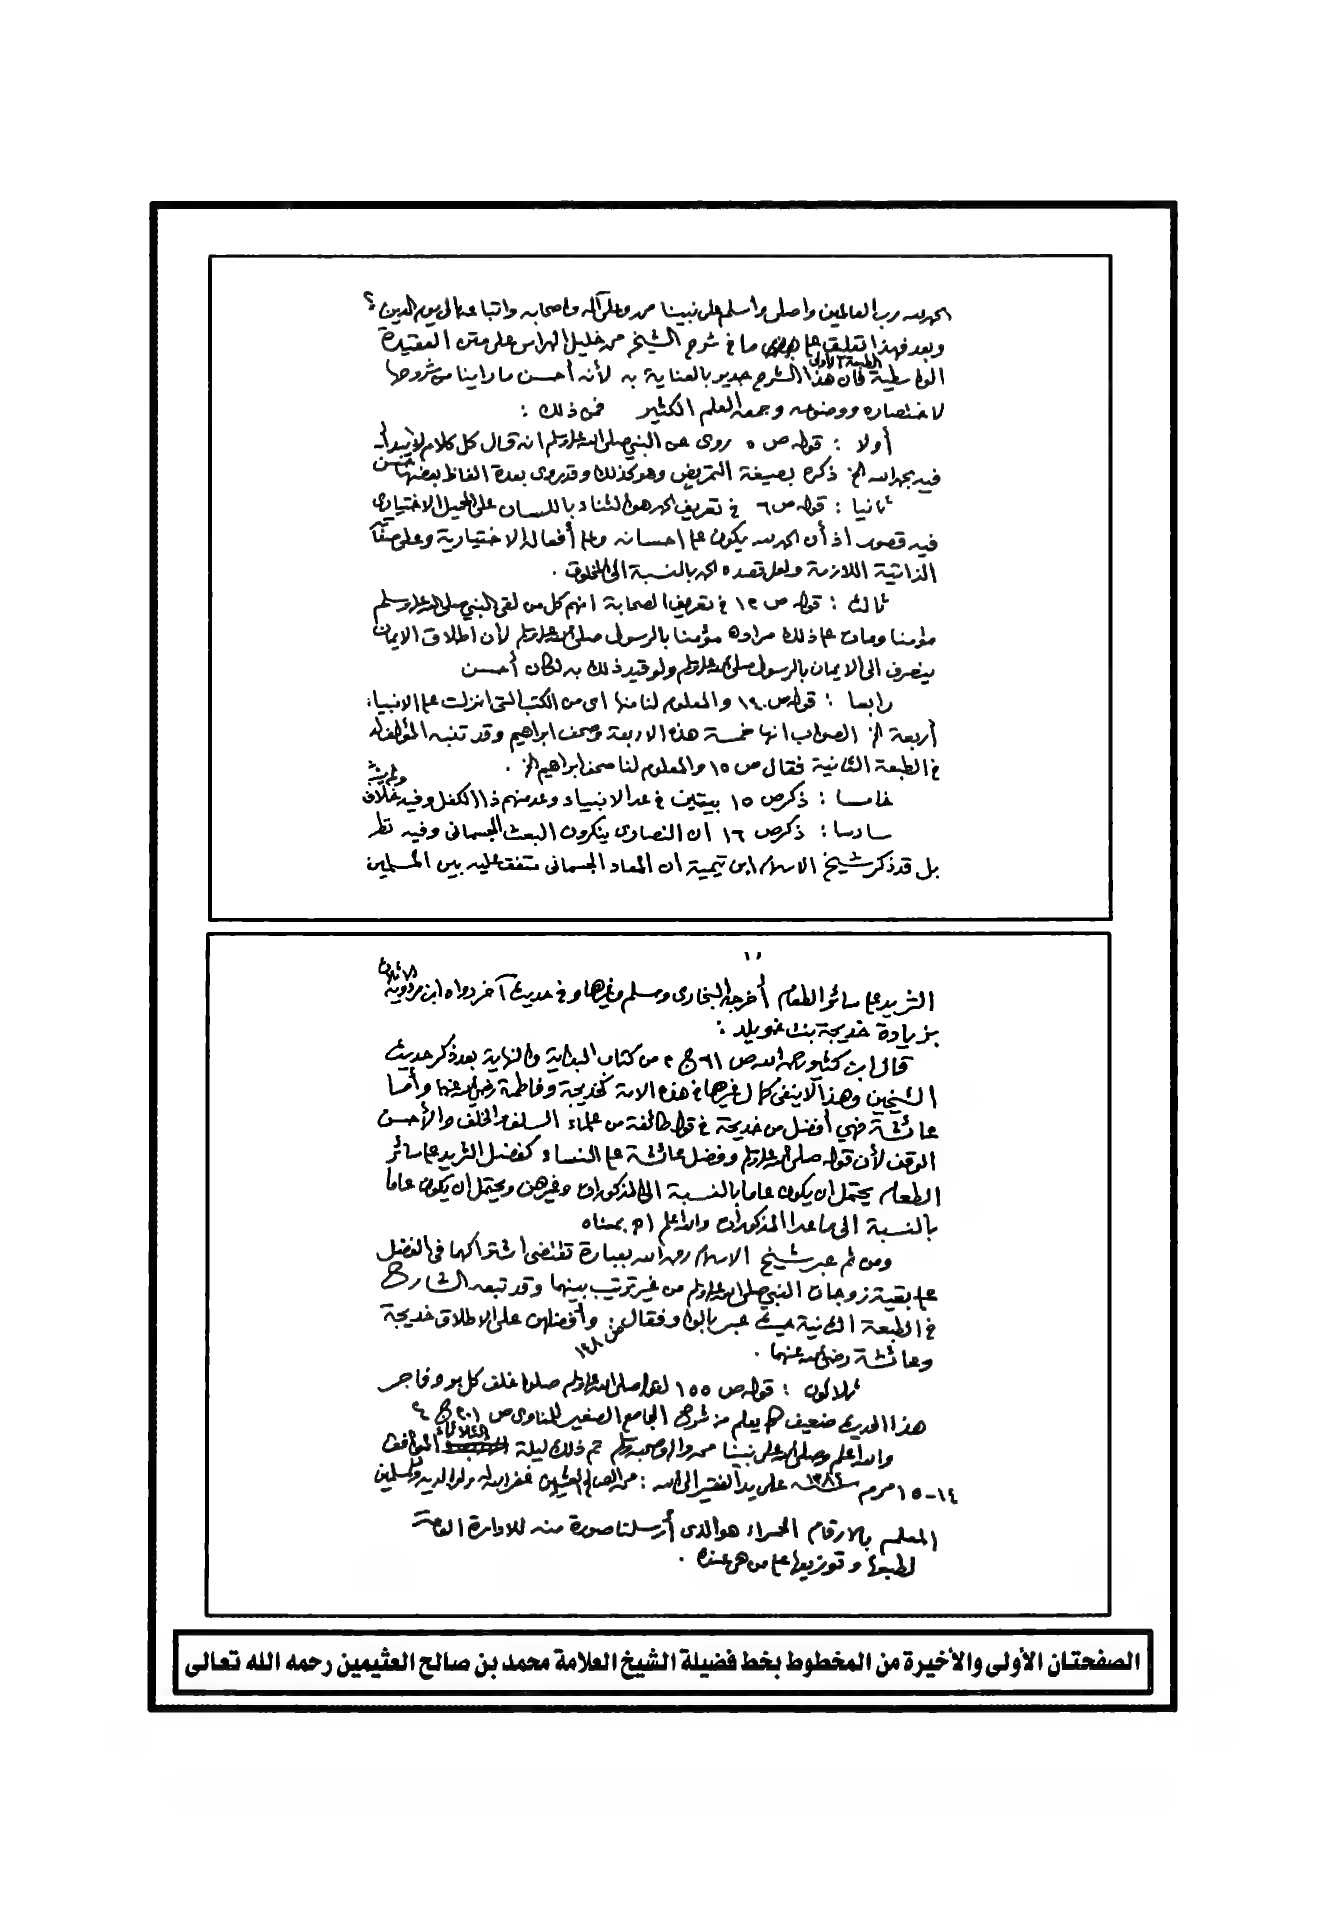 الحمد لله رب العالمين واصلي واسلم على نبينا محمد وعلى آله واصحابه واتباعه الى يوم الدين
وبعد فهذا تعليق على ما في شرح الشيخ محمد خليل الهراس على متن العقيدة
الطبعة الأولى
الواسطية فان هذا الشرح جدير بالعناية به لأنه أحسن ما راينا من شروحها
لاختصاره ووضوحه وجمعه العلم الكثير فمن ذلك :
أولا : قوله ص ٥ روى عن النبي صلى الله عليه وسلم انه قال كل كلام لا يبدأ
فيه بحمد الله الخ ذكره بصيغة التمريض وهو كذلك وقد روى بعدة الفاظ بعضها حسن
ثانيا : قوله ص ٦ في تعريف الحمد هو الثناء باللسان على الجميل الاختياري
فيه قصور اذ أن الحمد لله يكون على احسانه وعلى أفعاله الاختيارية وعلى صفاته
الذاتية اللازمة ولعل قصده الحمد بالنسبة الى المخلوق .
ثالثا : قوله ص ١٢ في تعريف الصحابة انهم كل من لقي النبي صلى الله عليه وسلم
مؤمنا ومات على ذلك مراده مؤمنا بالرسول صلى الله عليه وسلم لأن اطلاق الايمان
ينصرف الى الايمان بالرسول صلى الله عليه وسلم ولو قيد ذلك به لكان أحسن
رابعا : قوله ص ١٩ والمعلوم لنا منها اى من الكتب التى انزلت على الانبياء
أربعة الخ الصواب انها خمسة هذه الاربعة وصحف ابراهيم وقد تنبه المؤلف له
في الطبعة الثانية فقال ص ١٥ والمعلوم لنا صحف ابراهيم الخ .
خامسا : ذكر ص ١٥ بيتين في عد الانبياء وعد منهم ذا الكفل وفيه خلاف
سادسا : ذكر ص ١٦ ان النصارى ينكرون البعث الجسمانى وفيه نظر
بل قد ذكر شيخ الاسلام ابن تيمية ان المعاد الجسمانى متفق عليه بين المسلمين
١١
الثريد على سائر الطعام أخرجه البخارى ومسلم وغيرها وفي حديث آخر رواه ابن مردويه
بزيادة خديجة بنت خويلد .
قال ابن كثير رحمه الله ص ٦١ ج ٢ من كتاب البداية والنهاية بعد ذكر حديث
الشيخين وهذا لا ينفى كمال غيرها في هذه الامة كخديجة وفاطمة رضي الله عنهما وأما
عائشة فهي أفضل من خديجة في قول طائفة من علماء السلف والخلف والأحسن
الوقف لأن قوله صلى الله عليه وسلم وفضل عائشة على النساء كفضل الثريد على سائر
الطعام يحتمل ان يكون عاما بالنسبة الى المذكورات وغيرهن ويحتمل ان يكون عاما
بالنسبة الى ما عدا المذكورات والله اعلم اه بمعناه
ومن ثم عبر شيخ الاسلام رحمه الله بعبارة تقتضى اشتراكهما في الفضل
على بقية زوجات النبي صلى الله عليه وسلم من غير ترتيب بينهما وقد تبعه الشارح
في الطبعة الثانية حيث عبر بالواو فقال : وأفضلهن على الاطلاق خديجة
وعائشة رضي الله عنهما . ص ١٤٨
ثلاثون : قوله ص ١٥٥ لقوله صلى الله عليه وسلم صلوا خلف كل بر وفاجر
هذا الحديث ضعيف كما يعلم من شرح الجامع الصغير للمناوى ص ٢٠١ ج ٤
والله اعلم وصلى الله على نبينا محمد وآله وصحبه وسلم تم ذلك ليلة الثلاثاء الموافق
١٤-١٥ محرم سنة ١٣٨٤ على يد الفقير الى الله : محمد الصالح العثيمين غفر الله له ولوالديه وللمسلمين
المعلم بالارقام الحمراء هو الذى أرسلنا صورة منه للادارة العامة
لطبعها وتوزيعها على من هى عنده .
الصفحتان الأولى والأخيرة من المخطوط بخط فضيلة الشيخ العلامة محمد بن صالح العثيمين رحمه الله تعالى